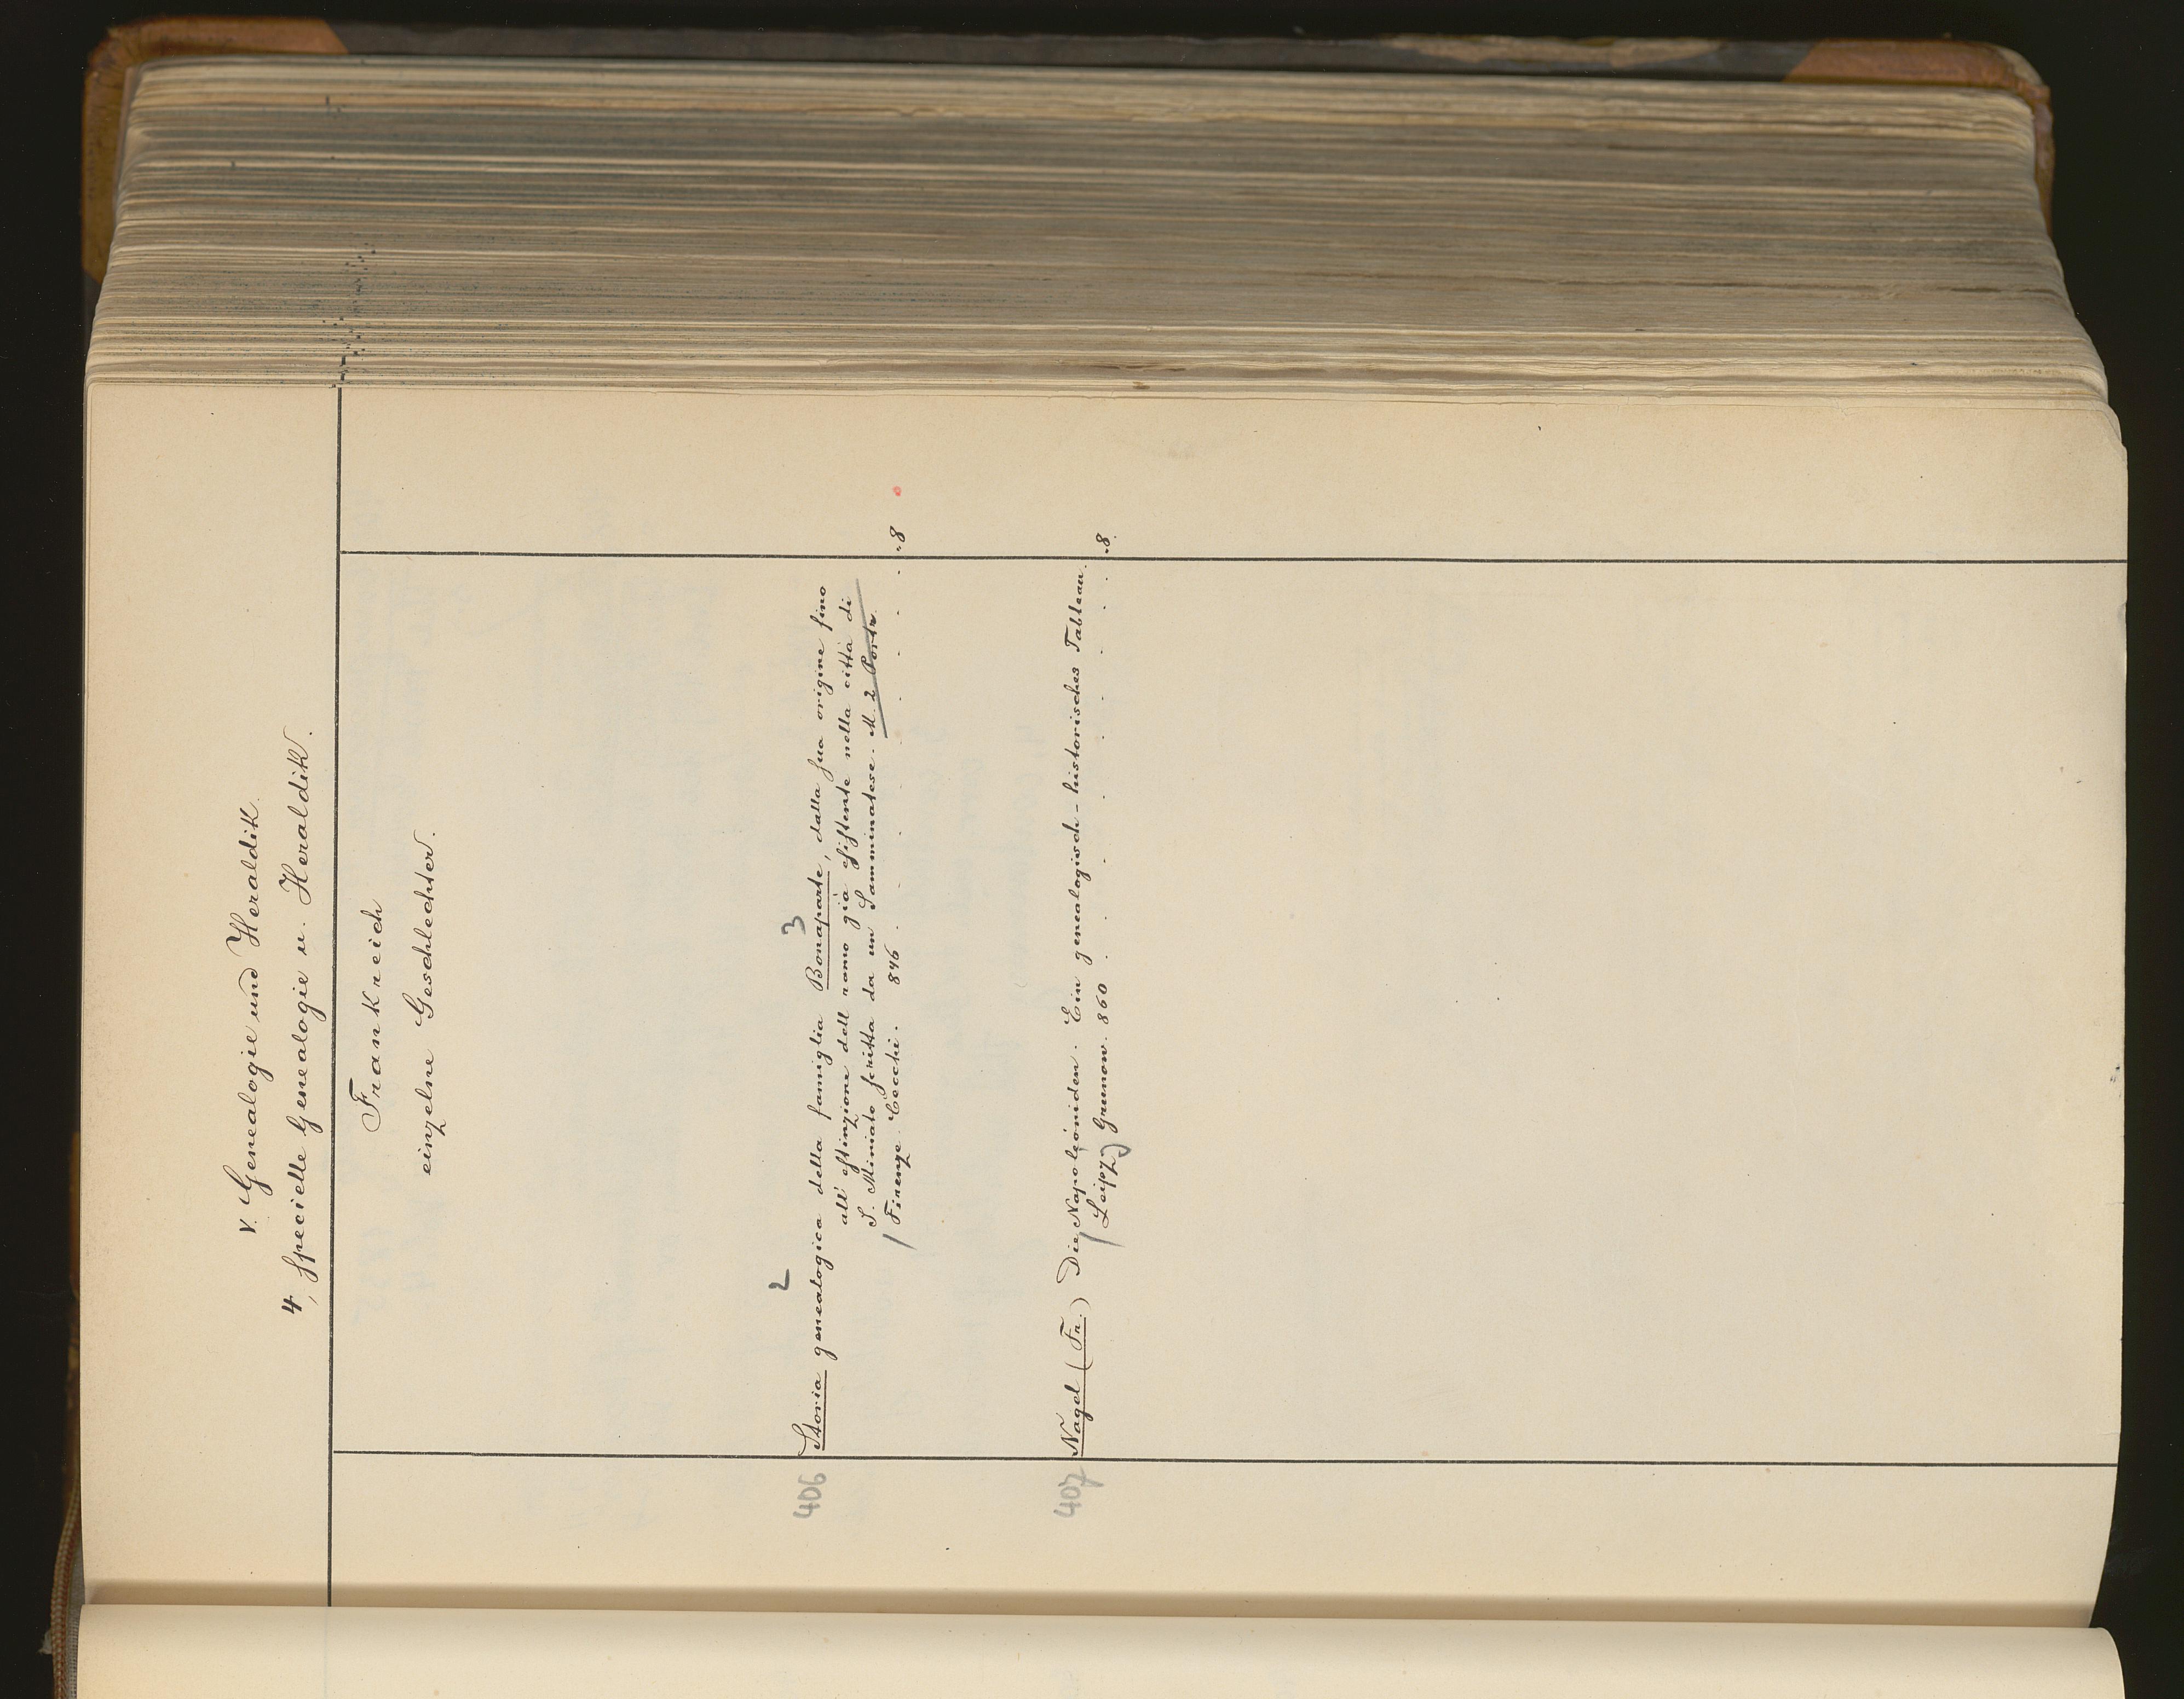 V. Genealogie und Heraldik.
4, Specielle Genealogie u. Heraldik.
Frankreich
einzelne Geschlechter.
2 3
406 Storia genealogica della famiglia Bonaparte, dalla sua origine fino
all' estinzione dell ramo già esistente nella città di
S. Miniato scritta da un Samminatese. M. 2 Portr.
Firenze. Cecchi. 846 . . . . . . . . 8
407 Nagel (Fr.) Die Napoleoniden. Ein genealogisch-historisches Tableau.
Leipz. Grunow. 860 . . . . . . . . 8.